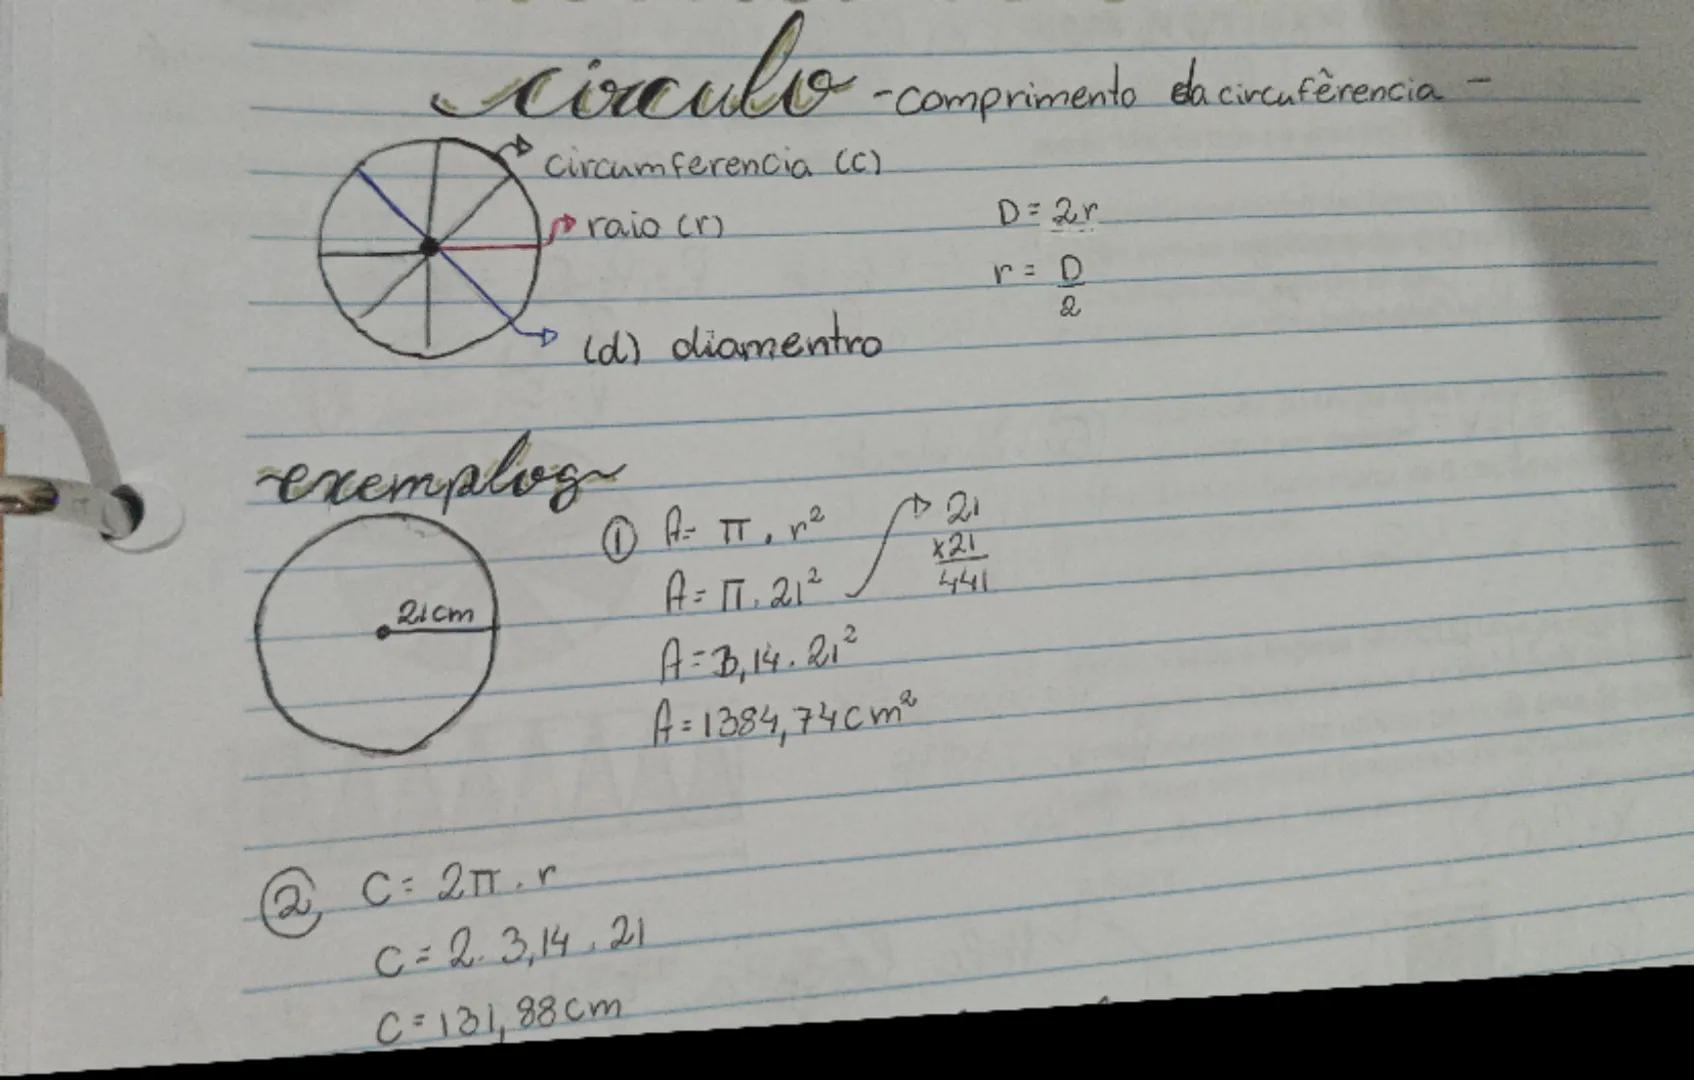 círculo - comprimento da circufêrencia -
circumferencia (c)
raio (r)
D = 2r
r = D
2
(d) diamentro
~exemplos~
21cm
① A = π . r²
A = π . 21²
A = 3,14 . 21²
A = 1384,74cm²
21
x21
441
② C = 2π . r
C = 2 . 3,14 . 21
C = 131,88cm